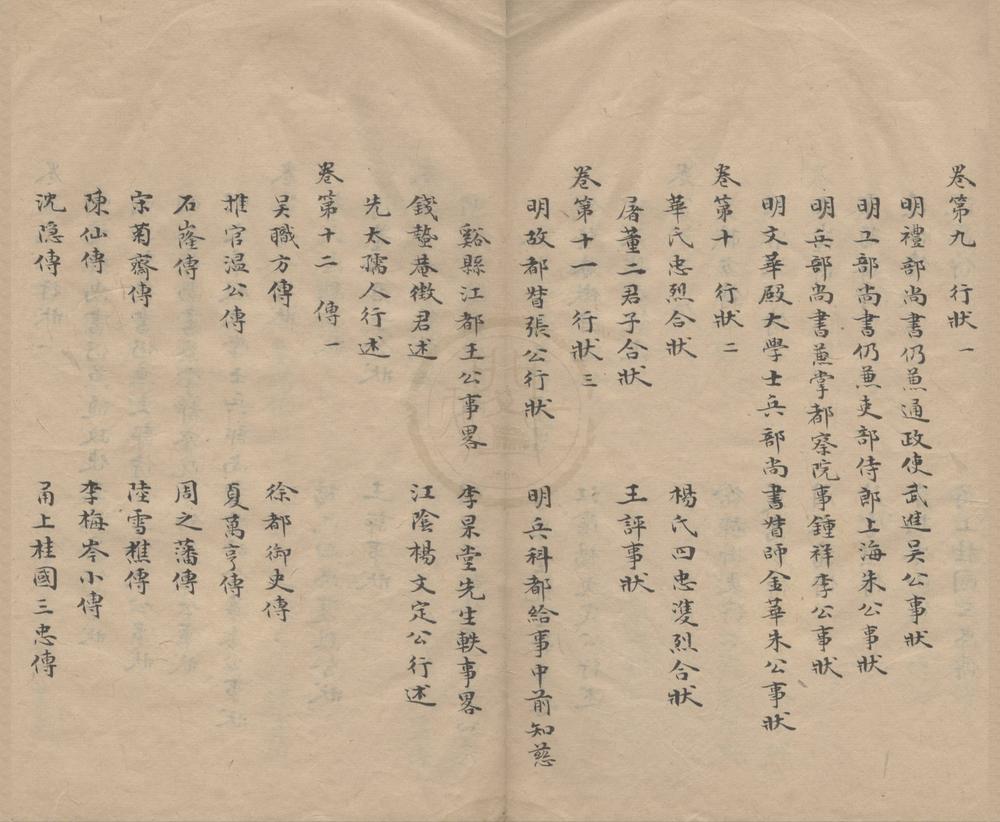 卷第九　行狀一
明禮部尚書仍兼通政使武進吳公事狀
明工部尚書仍兼吏部侍郎上海朱公事狀
明兵部尚書兼掌都察院事鍾祥李公事狀
明文華殿大學士兵部尚書督師金華朱公事狀
卷第十　行狀二
華氏忠烈合狀　楊氏四忠雙烈合狀
屠董二君子合狀　王評事狀
卷第十一　行狀三
明故都督張公行狀　明兵科都給事中前知慈
谿縣江都王公事畧　李杲堂先生軼事畧
錢蟄菴徵君述　江陰楊文定公行述
先太孺人行述
卷第十二　傳一
吳職方傳　徐都御史傳
推官溫公傳　夏萬亨傳
石嶐傳　周之藩傳
宗菊齋傳　陸雪樵傳
陳仙傳　李梅岑小傳
沈隱傳　甬上桂國三忠傳